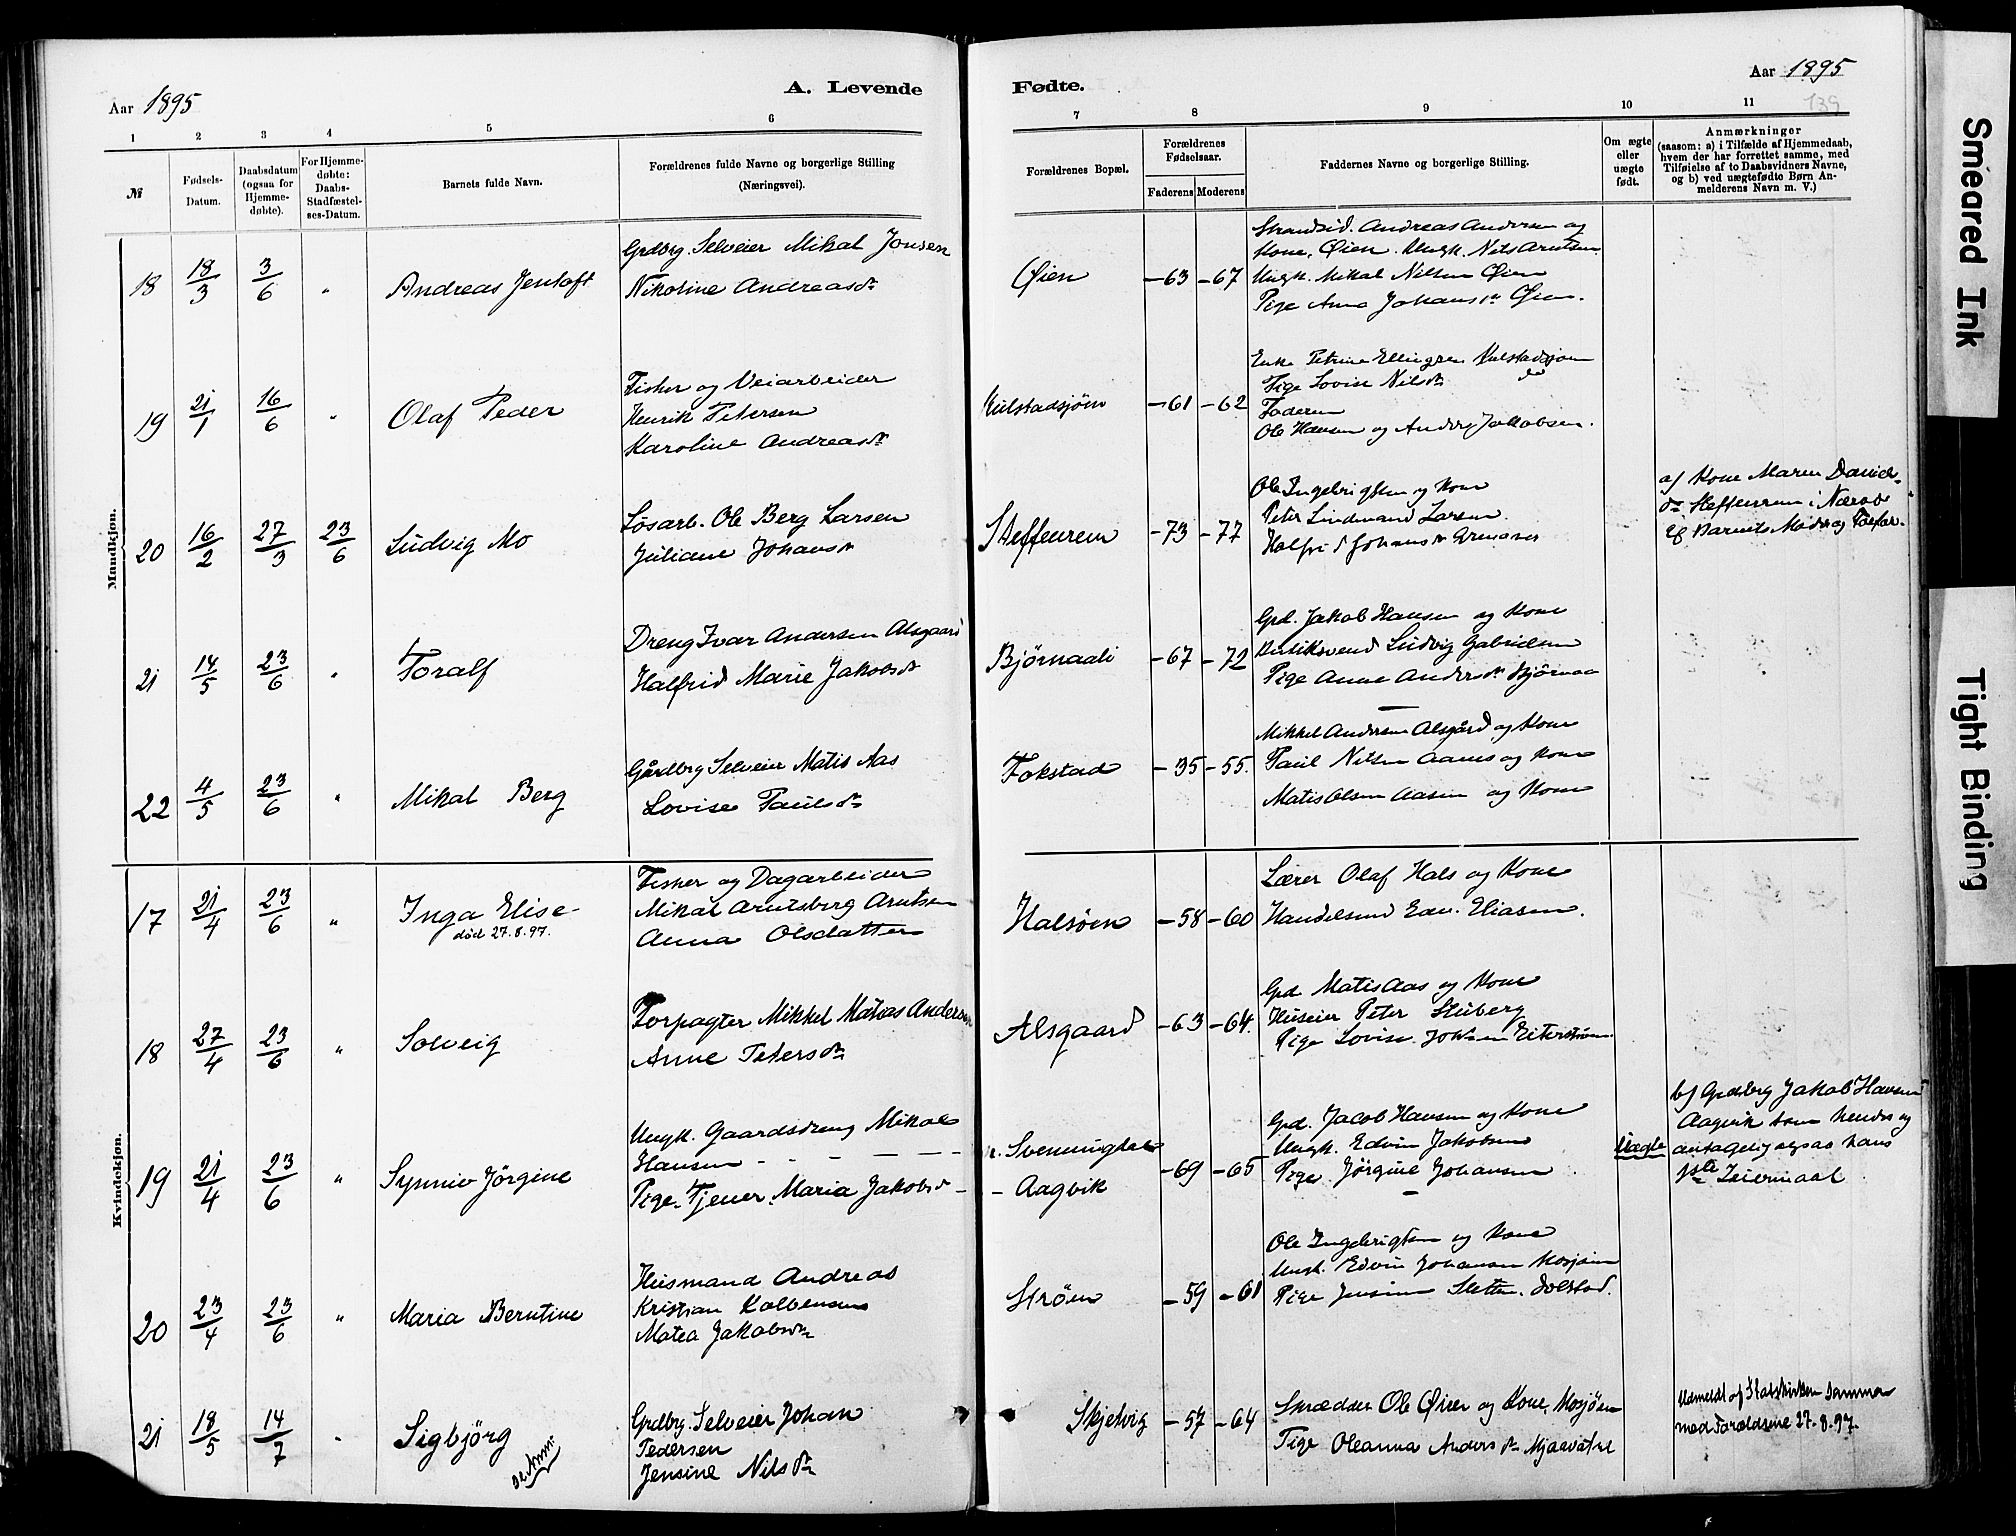 Aar 1895
A. Levende
Fødte.
Aar 1895
139
1 2 3 4 5 6
7 8 9 10 11
№
Fødsels-
Datum.
Daabsdatum
(ogsaa for
Hjemme-
døbte).
For Hjemme-
døbte:
Daabs-
Stadfæstel-
ses-Datum.
Barnets fulde Navn.
Forældrenes fulde Navne og borgerlige Stilling
(Næringsvei).
Forældrenes Bopæl.
Forældrenes
Fødselsaar.
Faderens Moderens
Faddernes Navne og borgerlige Stilling.
Om ægte
eller
uægte
født.
Anmærkninger
(saasom: a) i Tilfælde af Hjemmedaab,
hvem der har forrettet samme, med
Tilføielse af to Daabsvidners Navne,
og b) ved uægtefødte Børn An-
melderens Navn m. V.)
Mandkjøn.
18 18/3 3/6 " Andreas Jentoft
Grdbrg. Selveier Mikal Jonsen
Nikoline Andreasdr
Øien -63 -67
Strandsid. Andreas Andersen og
Kone, Øien. Ungk. Nils Arntsen
Ungk. Mikal Nilsen Øien
Pige Anna Johansdr Øien.
19 21/1 16/6 " Olaf Peder
Fisker og Veiarbeider
Henrik Petersen
Karoline Andreasdr
Kulstadsjøen -61 -62
Enke Petrine Ellingsen Kulstadsjøen
Pige Lovise Nilsdr do
Faderen
Ole Hansen og Anders Jakobsen.
20 16/2 27/3 23/6 Ludvig Mo
Løsarb. Ole Berg Larsen
Juliane Johansdr
Steffenrem -73 -77
Ole Ingebrigtsen og Kone
Peter Lindmand Larsen
Halfrid Johansdr
a) Kone Maren Davids-
dr Steffenrem i Nærv
af Barnets Moder og Farfar.
21 14/5 23/6 " Toralf
Dreng Ivar Andersen Alsgaard
Halfrid Marie Jakobsdr
Bjørnaali -67 -72
Grd. Jakob Hansen og Kone
Ludvig Gabrielsen
Pige Anne Andersdr Bjørnaa
22 4/5 23/6 " Mikal Berg
Gårdbrg Selveier Matis Aas
Lovise Paulsdr
Fokstad -35 -55.
Mikkel Andersen Alsgård og Kone
Paul Nilsen Aanes og Kone
Matis Olsen Aasen og Kone
Kvindekjøn.
17 21/4 23/6 " Inga Elise
død 27.8.97.
Fisker og Dagarbeider
Mikal Arntsberg Arntsen
Anna Olsdatter
Halsøen -58 -60
Lærer Olaf Hals og Kone
Handelsmd Edv. Eliasen.
18 27/4 23/6 " Solveig
Forpagter Mikkel Matias Andersen
Anne Petersdr
Alsgaard -63 -64.
Grd. Matis Aas og Kone
Huseier Peter Stuberg
Pige Lovise Johnsen Eiterstrøm.
19 21/4 23/6 " Synniv Jørgine
Ungk. Gaardsdreng Mikal
Hansen - - - - -
Pige. Tjener. Maria Jakobsd -
Svenningdal
- Aagvik
-69 -65
Grd. Jacob Hansen og Kone
Ungk. Edvin Jakobsen
Pige Jørgine Johansen
Uægte
b) Grdbrg Jakob Hansen
Aagvik som hendes og
antagelig ogsaa hans
1ste Leiermaal
20 23/4 23/6 " Maria Berntine
Husmand Andreas
Kristian Kolbensen
Matea Jakobsdr
Strøen -59 -61
Ole Ingebrigtsen og Kone
Ungk. Edvin Johansen Mosjøen
Pige Jensine Sletten. Dolstad.
21 18/5 14/7 " Sigbjörg
se Anm:
Grdbrg. Selveier Johan
Pedersen
Jensine Nilsdr
Skjelvig -57 -64
Skrædder Ole Øien og Kone, Mosjøen
Pige Oleanna Andersdr Mjaavatn
Udmeldt af Statskirken sammen
med Forældrene 27.8.97.
Smeared Ink
Tight Binding